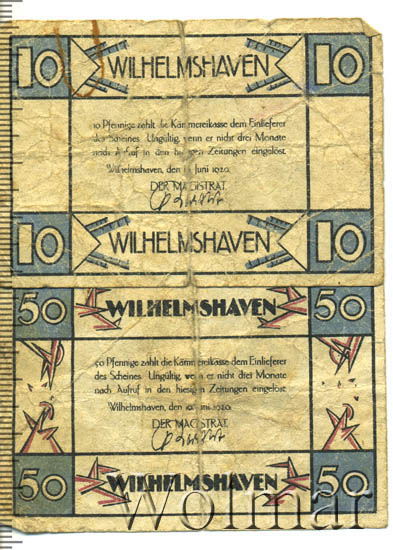 10 WILHELMSHAVEN 10
10 Pfennige zahlt die Kämmereikasse dem Einlieferer
des Scheines. Ungültig, wenn er nicht drei Monate
nach Aufruf in den hiesigen Zeitungen eingelöst.
Wilhelmshaven, den Juni 1920.
DER MAGISTRAT.
10 WILHELMSHAVEN 10
50 WILHELMSHAVEN 50
50 Pfennige zahlt die Kämmereikasse dem Einlieferer
des Scheines. Ungültig, wenn er nicht drei Monate
nach Aufruf in den hiesigen Zeitungen eingelöst.
Wilhelmshaven, den Juni 1920.
DER MAGISTRAT.
50 WILHELMSHAVEN 50
Wolmar